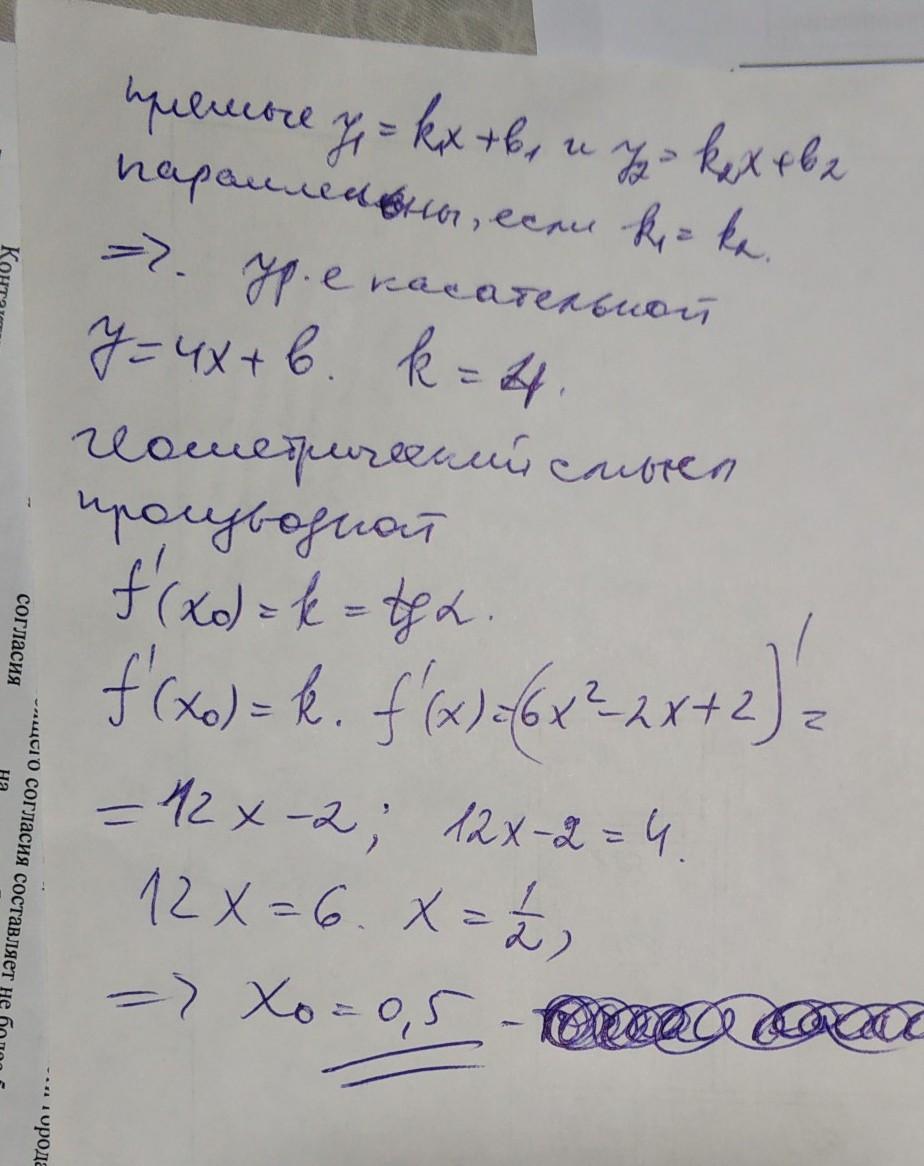 прямые y₁ = k₁x + b₁ и y₂ = k₂x + b₂
параллельны, если k₁ = k₂.
=>. ур-е касательной
y = 4x + b. k = 4.
Геометрический смысл
производной
f'(x₀) = k = tg α.
f'(x₀) = k. f'(x) = (6x² - 2x + 2)' =
= 12x - 2; 12x - 2 = 4.
12x = 6. x = 1/2,
=> x₀ = 0,5 -
согласия
на
щего согласия составляет не более